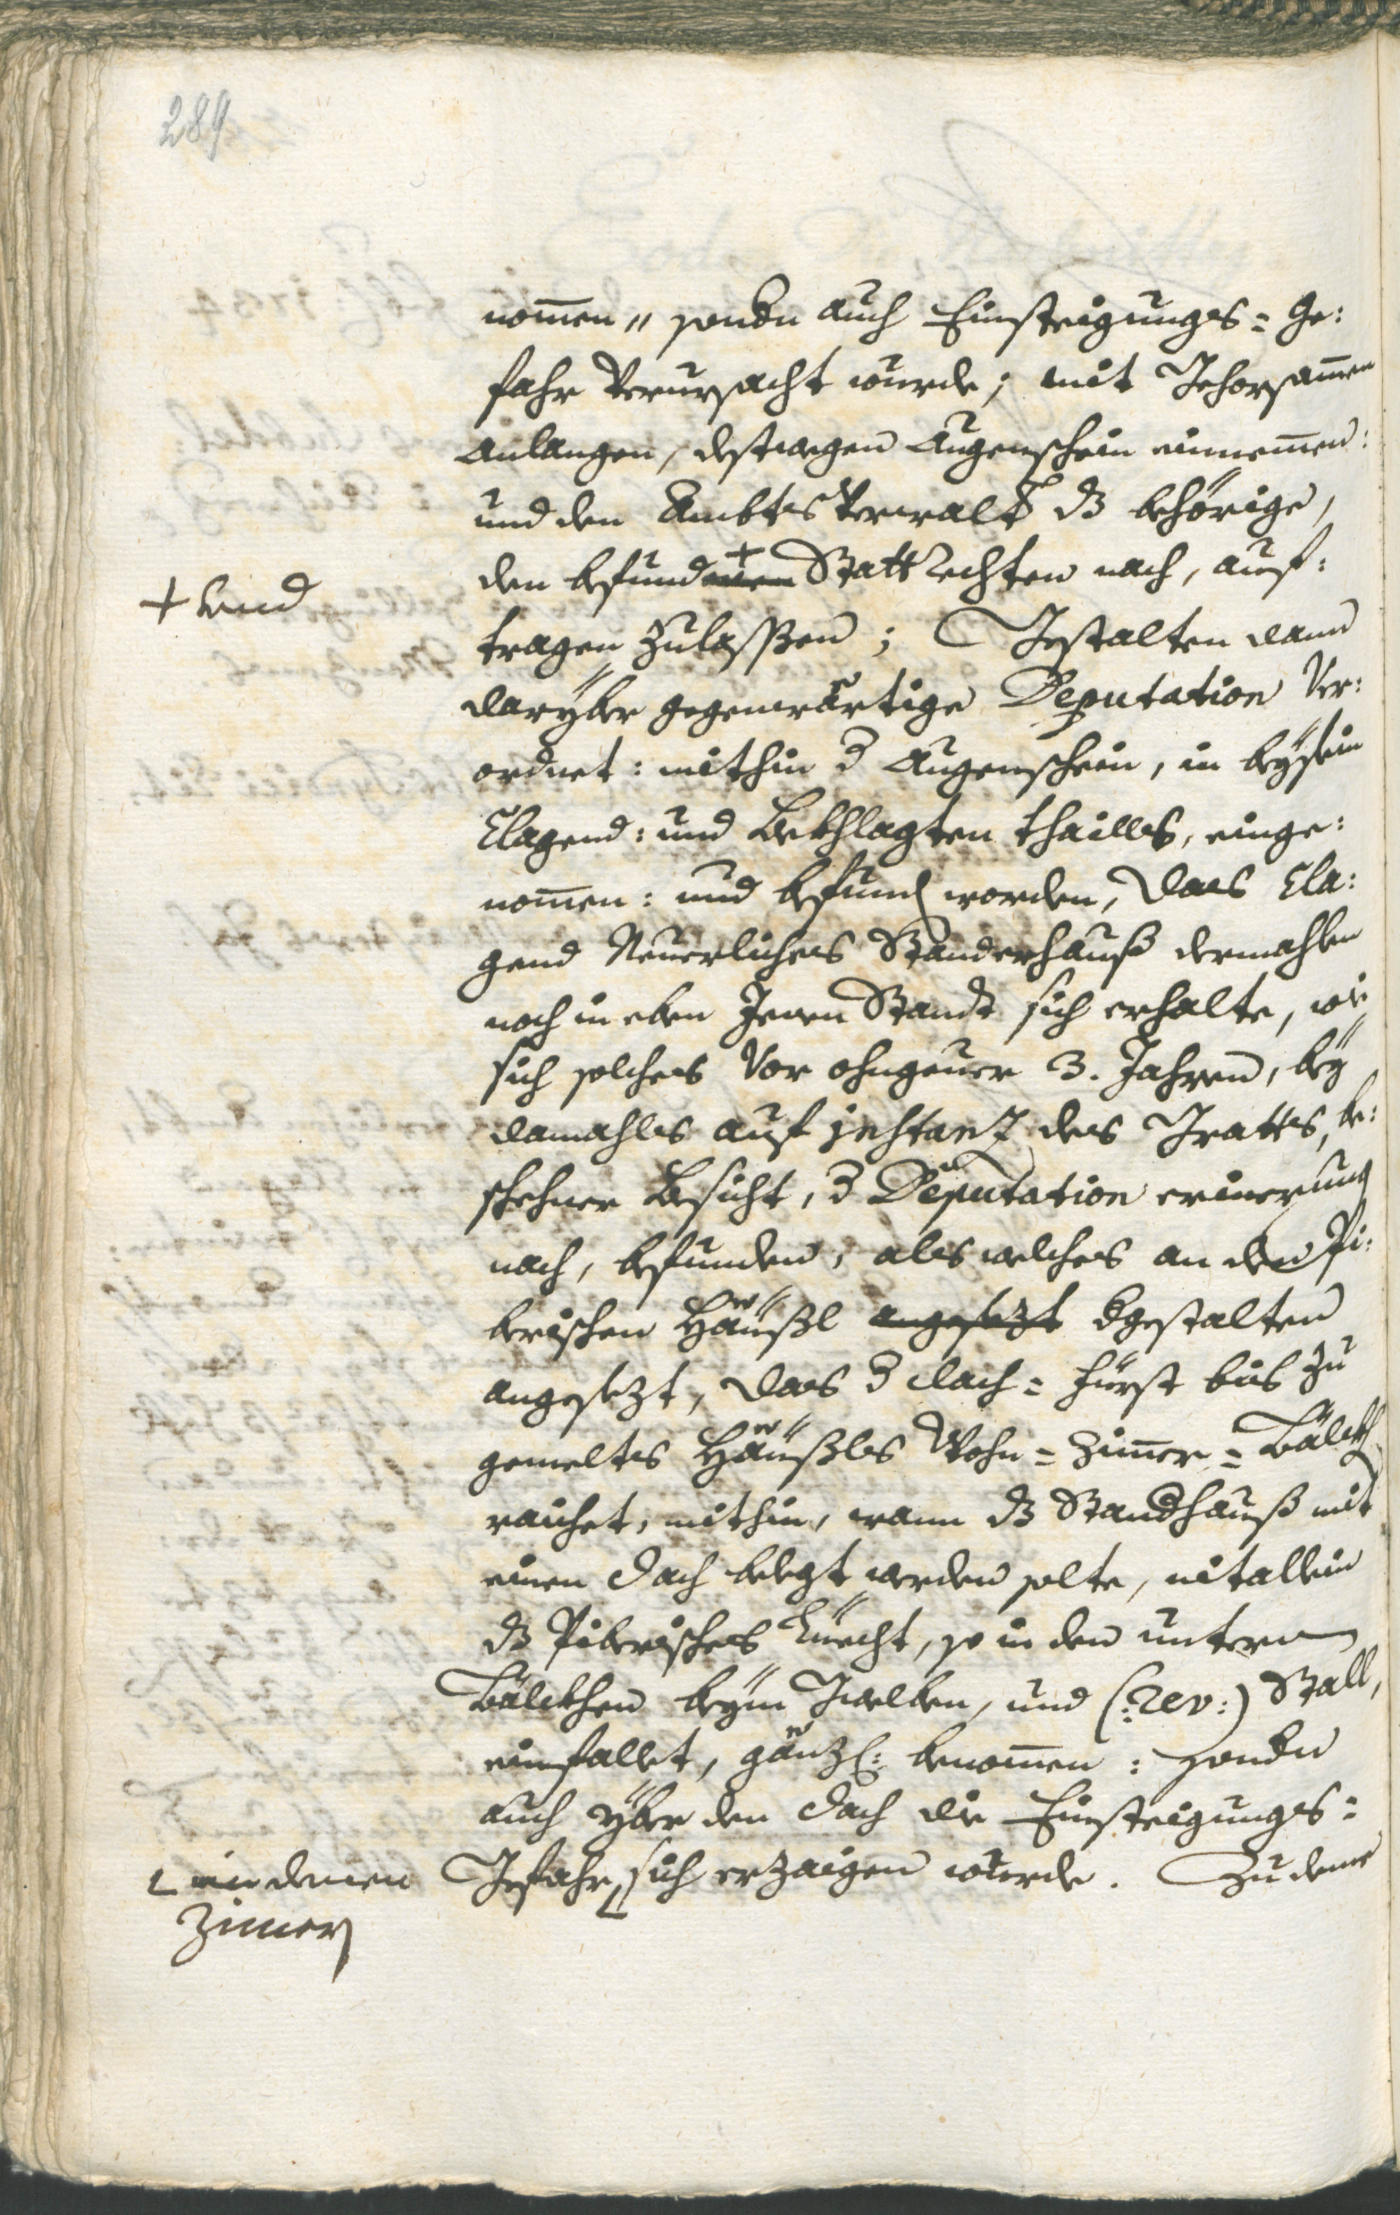 289
nom̄en„ sondern auch Einsteigungs= Ge:
fahr verursacht wurde; mit Gehorsam̄en
Anlangen, destwegen Augenschein einnem̄en:
und den Ambtsverwalter dz behörige,
den befundenen Statt Rechten nach, auf:
+ und
tragen zulassen; Gestalten dann
daryber gegenwärtige Deputation ver:
ordnet: mithin der Augenschein, in beysein
Clagend: und Bekhlagten thaills, einge:
nom̄en: und befund worden, das Cla:
gend Neuerliches Ständerhauß dermahlen
noch in eben Jenen Standt sich erhalte, wie
sich solches vor ohngeuer 3. Jahren, bey
damahls auf instanz des Gratts, be:
schehner Besicht, der Deputation erinerung
nach, befunden, als welches an den Pi:
berischen Häußl angesezt dergestalten
angesezt, das der dach= fürst bis zu
gemeltes Häußls Wohn= Zim̄er= Bälckh
raichet, mithin, wann dz Standhauß mit
einen Dach belegt werden solte, nit allein
dz Piberisches Liecht, so in den untern
Bälckhen beym Gwelben, und (:rev:) Stall,
einfallet, gänzl: benom̄en: sondern
auch yber den Dach die Einsteigungs=
Gefahr, sich erzaigen wurde. Zu deme
∟ in denen
Zimer